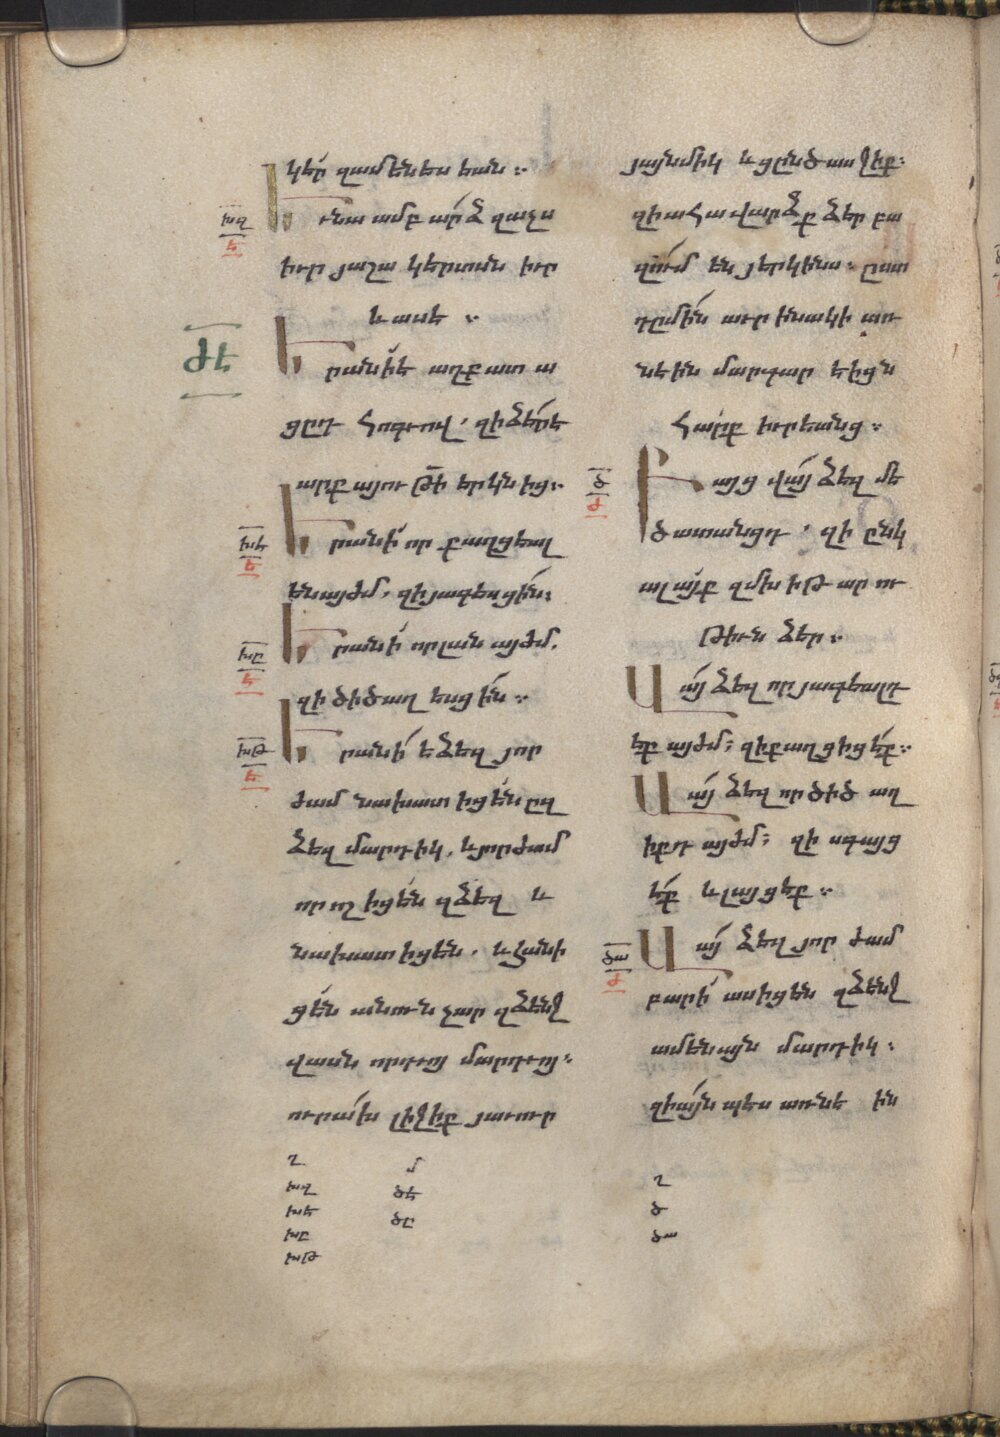 կէր զամենեսեան։
խզ
ե
Եւ նա ամբարձ զաչս
իւր յաշակերտսն իւր
և ասէ։
ժե
Երանի՛ է աղքատա
ցըդ հոգւով, զի ձեր է
արքայութի երկնից։
խէ
ե
Երանի՛ որ քաղցեալ
են այժմ, զի յագեսցին։
խը
ե
Երանի՛ որ լան այժմ,
զի ծիծաղեսցին։
խթ
ե
Երանի՛ է ձեզ յոր
ժամ նախատիցեն ըզ
ձեզ մարդիկ, և յորժամ
որոշիցեն զձեզ և
նախատիցեն, և հանի
ցեն անուն չար զձենջ
վասն որդւոյ մարդւոյ։
ուրա՛խ լիջիք յաւուր
յայնմիկ և ցընծասջիք։
զի ահա վարձք ձեր բա
զում են յերկինս. ըստ
դըմին աւրինակի առ
նեին մարգարէիցն
հարք իւրեանց։
ծ
ժ
Բայց վա՛յ ձեզ մե
ծատանցդ, զի ընկ
ալայք զմխիթարու
թիւն ձեր։
Վա՛յ ձեզ որ յագեալդ
եք այժմ, զի քաղցիցէք։
Վա՛յ ձեզ որ ծիծաղ
իքդ այժմ, զի սգայց
էք և լայցեք։
ծա
ժ
Վա՛յ ձեզ յորժամ
բարի՛ ասիցեն զձենջ
ամենայն մարդիկ։
զի այնպես առնե ին
ղ մ
խզ ծէ
խէ ծը
խը
խթ
ղ
ծ
ծա